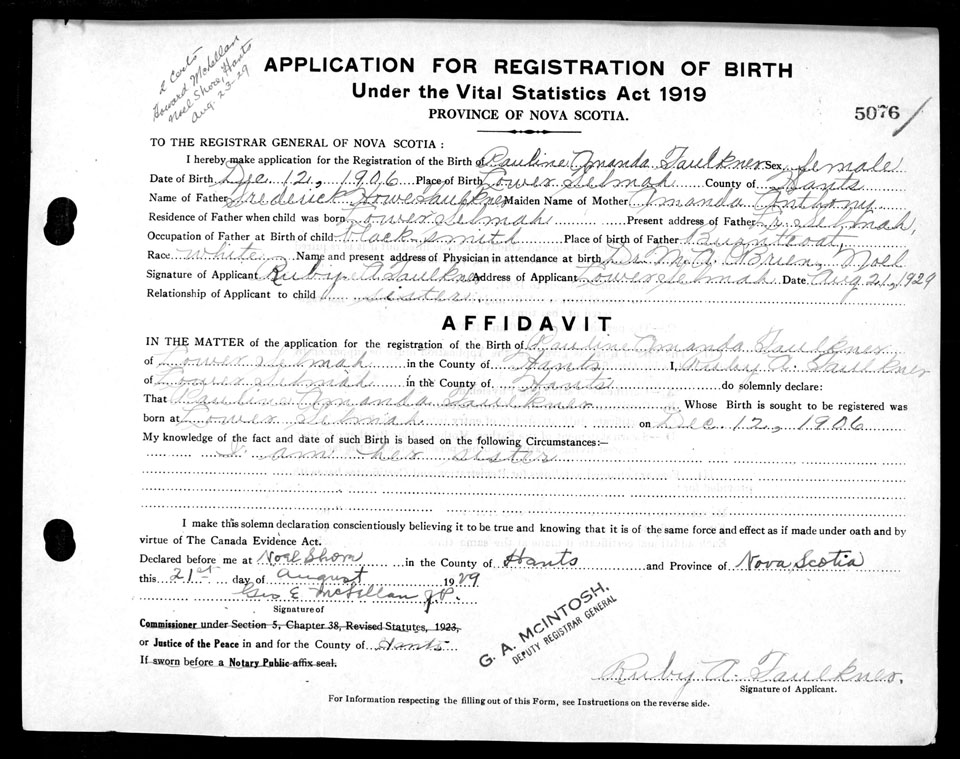 2 Certs
Howard McLellan
Noel Shore, Hants
Aug-23-29
APPLICATION FOR REGISTRATION OF BIRTH
Under the Vital Statistics Act 1919
PROVINCE OF NOVA SCOTIA.
5076
TO THE REGISTRAR GENERAL OF NOVA SCOTIA :
I hereby make application for the Registration of the Birth of Pauline Amanda Faulkner Sex female
Date of Birth Dec 12, 1906 Place of Birth Lower Selmah County of Hants
Name of Father Frederick Howe Faulkner Maiden Name of Mother Amanda Anthony
Residence of Father when child was born Lower Selmah Present address of Father L. Selmah,
Occupation of Father at Birth of child blacksmith Place of birth of Father Burntcoat,
Race white Name and present address of Physician in attendance at birth Dr. M. A. O'Brien, Noel
Signature of Applicant Ruby A Faulkner Address of Applicant Lower Selmah Date Aug 21, 1929
Relationship of Applicant to child sister
AFFIDAVIT
IN THE MATTER of the application for the registration of the Birth of Pauline Amanda Faulkner
of Lower Selmah in the County of Hants I, Ruby A. Faulkner
of Lower Selmah in the County of Hants do solemnly declare:
That Pauline Amanda Faulkner Whose Birth is sought to be registered was
born at Lower Selmah on Dec. 12, 1906
My knowledge of the fact and date of such Birth is based on the following Circumstances:—
I am her sister
I make this solemn declaration conscientiously believing it to be true and knowing that it is of the same force and effect as if made under oath and by
virtue of The Canada Evidence Act.
Declared before me at Noel Shore in the County of Hants and Province of Nova Scotia
this 21st day of August 1929
Geo E McLellan J.P.
Signature of
Commissioner under Section 5, Chapter 38, Revised Statutes, 1923,
or Justice of the Peace in and for the County of Hants
If sworn before a Notary Public affix seal.
G. A. MCINTOSH,
DEPUTY REGISTRAR GENERAL
Ruby A. Faulkner.
Signature of Applicant.
For Information respecting the filling out of this Form, see Instructions on the reverse side.